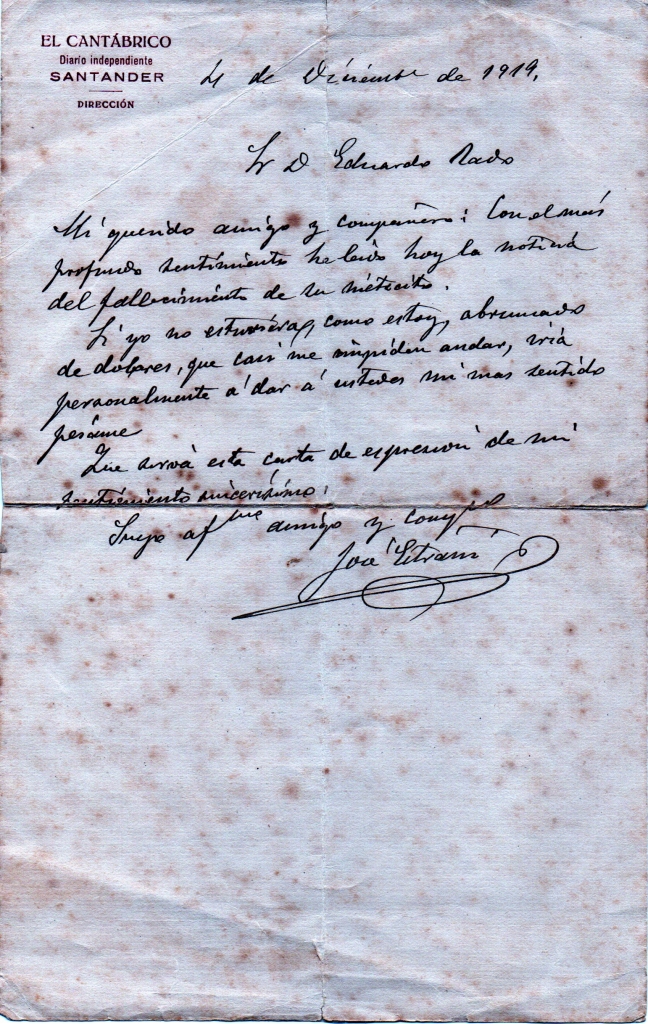 EL CANTÁBRICO
Diario independiente
SANTANDER
DIRECCIÓN
4 de Diciembre de 1919.
Sr D Eduardo Rado
Mi querido amigo y compañero: Con el más
profundo sentimiento he leido hoy la noticia
del fallecimiento de su nietecito.
Si yo no estuviera, como estoy, abrumado
de dolores, que casi me impiden andar, iria
personalmente á dar á ustedes mi mas sentido
pésame
Que sirva esta carta de expresión de mi
sentimiento sincerísimo.
Suyo af mo amigo y comp
José Estrañi